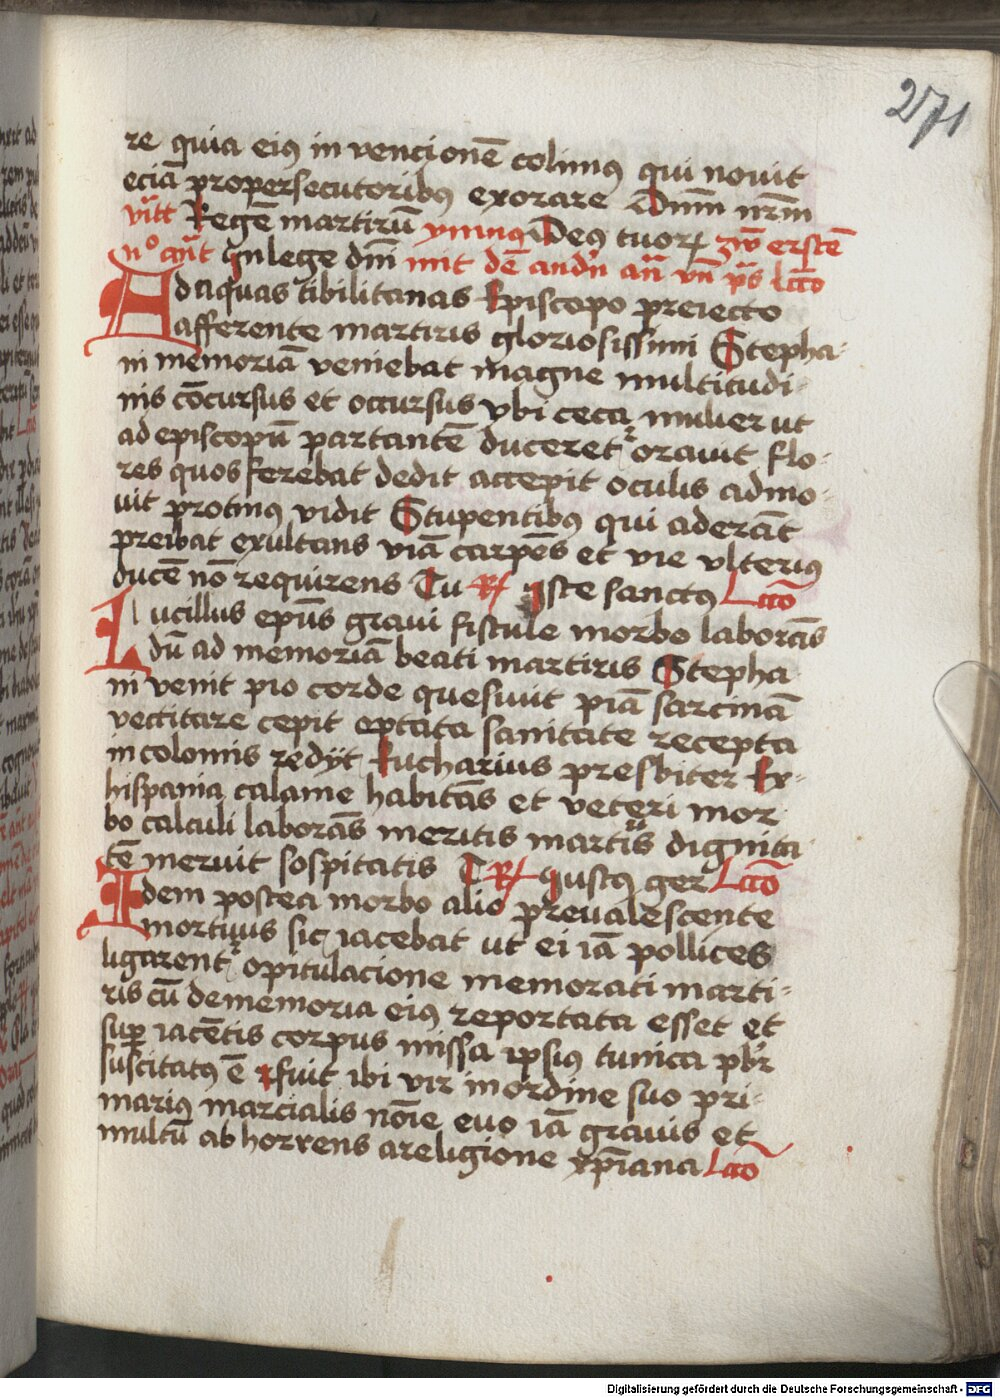 271
re quia eiꝰ in vencionē colimꝰ qui novit
eciā pro persecutoribꝰ exorare Dnm̄ nr̄m
Regē martirū ymnus Deꝰ tuoꝝ zw erstē
In lege dnī mit dē andn̄ an̄ vn̄ ps lcco
Ad aquas tibilitanas Episcopo preiecto
afferente martiris gloriosissimi Stepha-
ni memoriā veniebat magne multitudi-
nis cōcursus et occursus vbi ceca mulier ut
ad episcopū partantē duceretr oravit flo-
res quos ferebat dedit accepit oculis admo-
uit protinꝰ vidit Stupentibꝰ qui aderāt
preibat exultans viā carpēs et vie vlteriꝰ
ducē nō requirens Tu R Iste sanctꝰ Lcco
Lucillus epūs graui fistule morbo laborās
dū ad memoriā beati martiris Stepha
ni venit pio corde quesiuit piā sarcinā
vectitare cepit optata sanitate recepta
incolomis redijt Eucharius presbiter Ex-
hispania calame habitās et veteri mor
bo calculi laborās meritis martiris dignita
tē meruit sospitatis T R Iustꝰ ger Lcco
Idem postea morbo alio prevalescente
mortuus sic iacebat ut ei iā pollices
ligarentr opitulacione memorati marti-
ris cū de memoria eiꝰ reportata esset et
sup iacētis corpus missa ipsiꝰ tunica pbr
suscitatꝰ ē fuit ibi vir in ordine suo pri-
mariꝰ marcialis nōie euo iā grauis et
multū ab horrens a religione xpīana Lcco
Digitalisierung gefördert durch die Deutsche Forschungsgemeinschaft - DFG